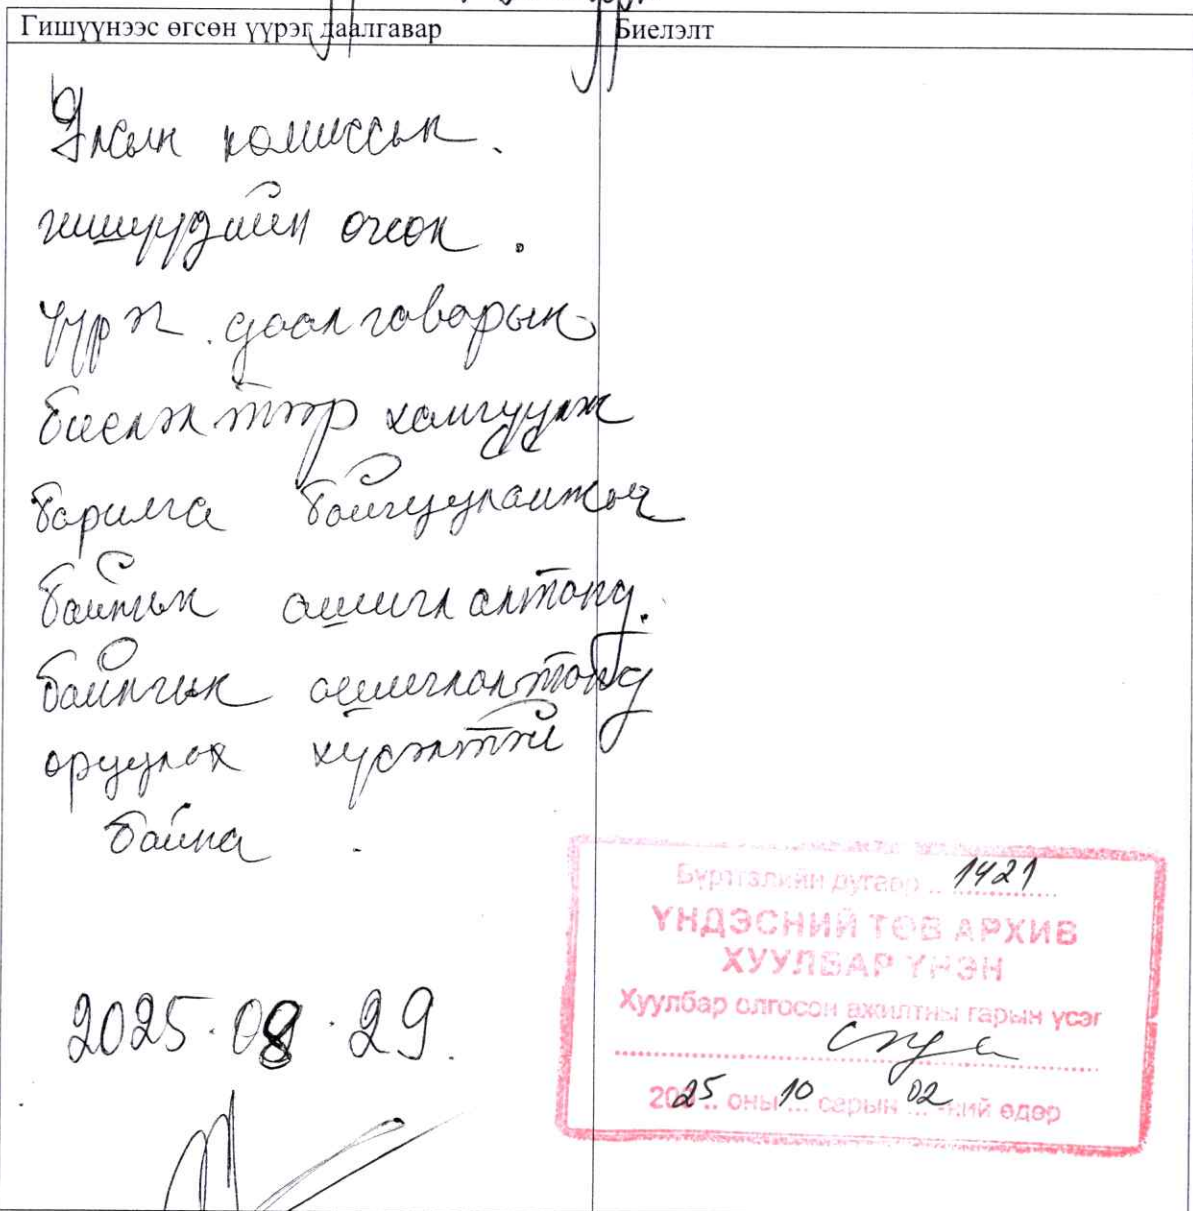 Гишүүнээс өгсөн үүрэг даалгавар
Биелэлт
Улсын комиссын.
гишүүдийн өгсөн.
үүрэг. даалгаварын
биелэлтээр хангуулж
барилга байгууламжыг
байнгын ашиглалтанд.
байнгын ашиглалтанд
оруулах хүсэлтэй
байна.
2025.08.29.
Бүртгэлийн дугаар .. 1421
ҮНДЭСНИЙ ТӨВ АРХИВ
ХУУЛБАР ҮНЭН
Хуулбар олгосон ажилтны гарын үсэг
2025.. оны ...10 сарын ...02 -ний өдөр